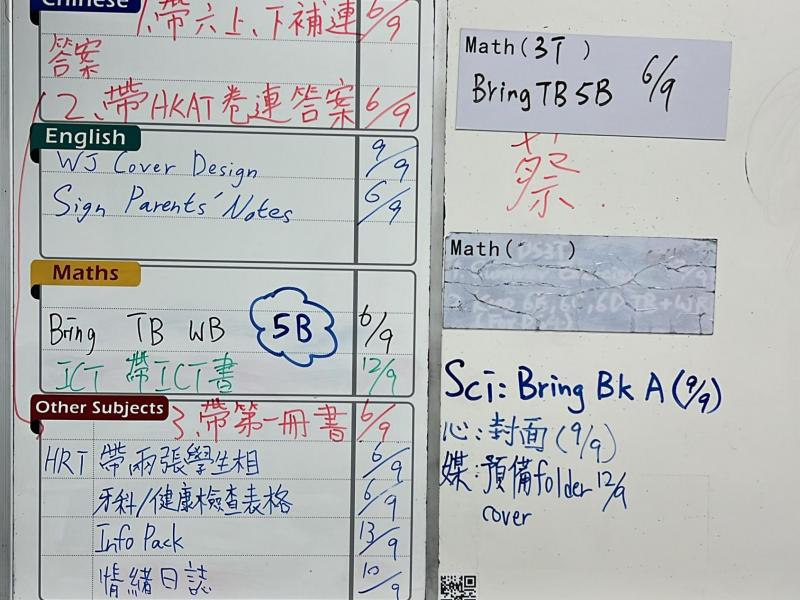 Chinese
1. 帶六上、下補連 6/9
答案
2、帶HKAT卷連答案 6/9
English
WJ Cover Design 9/9
Sign Parents' Notes 6/9
Maths
Bring TB WB 5B 6/9
ICT 帶ICT書 12/9
Other Subjects
3、帶第一冊書 6/9
HRT 帶兩張學生相 6/9
牙科/健康檢查表格 6/9
Info Pack 13/9
情緒日誌 10/9
Math(3T )
Bring TB 5B 6/9
蔡
Math( )
Sci: Bring Bk A (9/9)
心:封面 (9/9)
媒:預備folder 12/9
cover